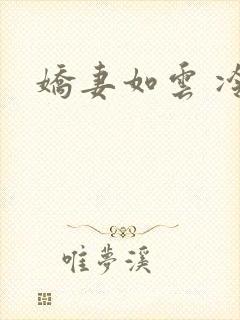 嬌妻如雲
唯夢溪